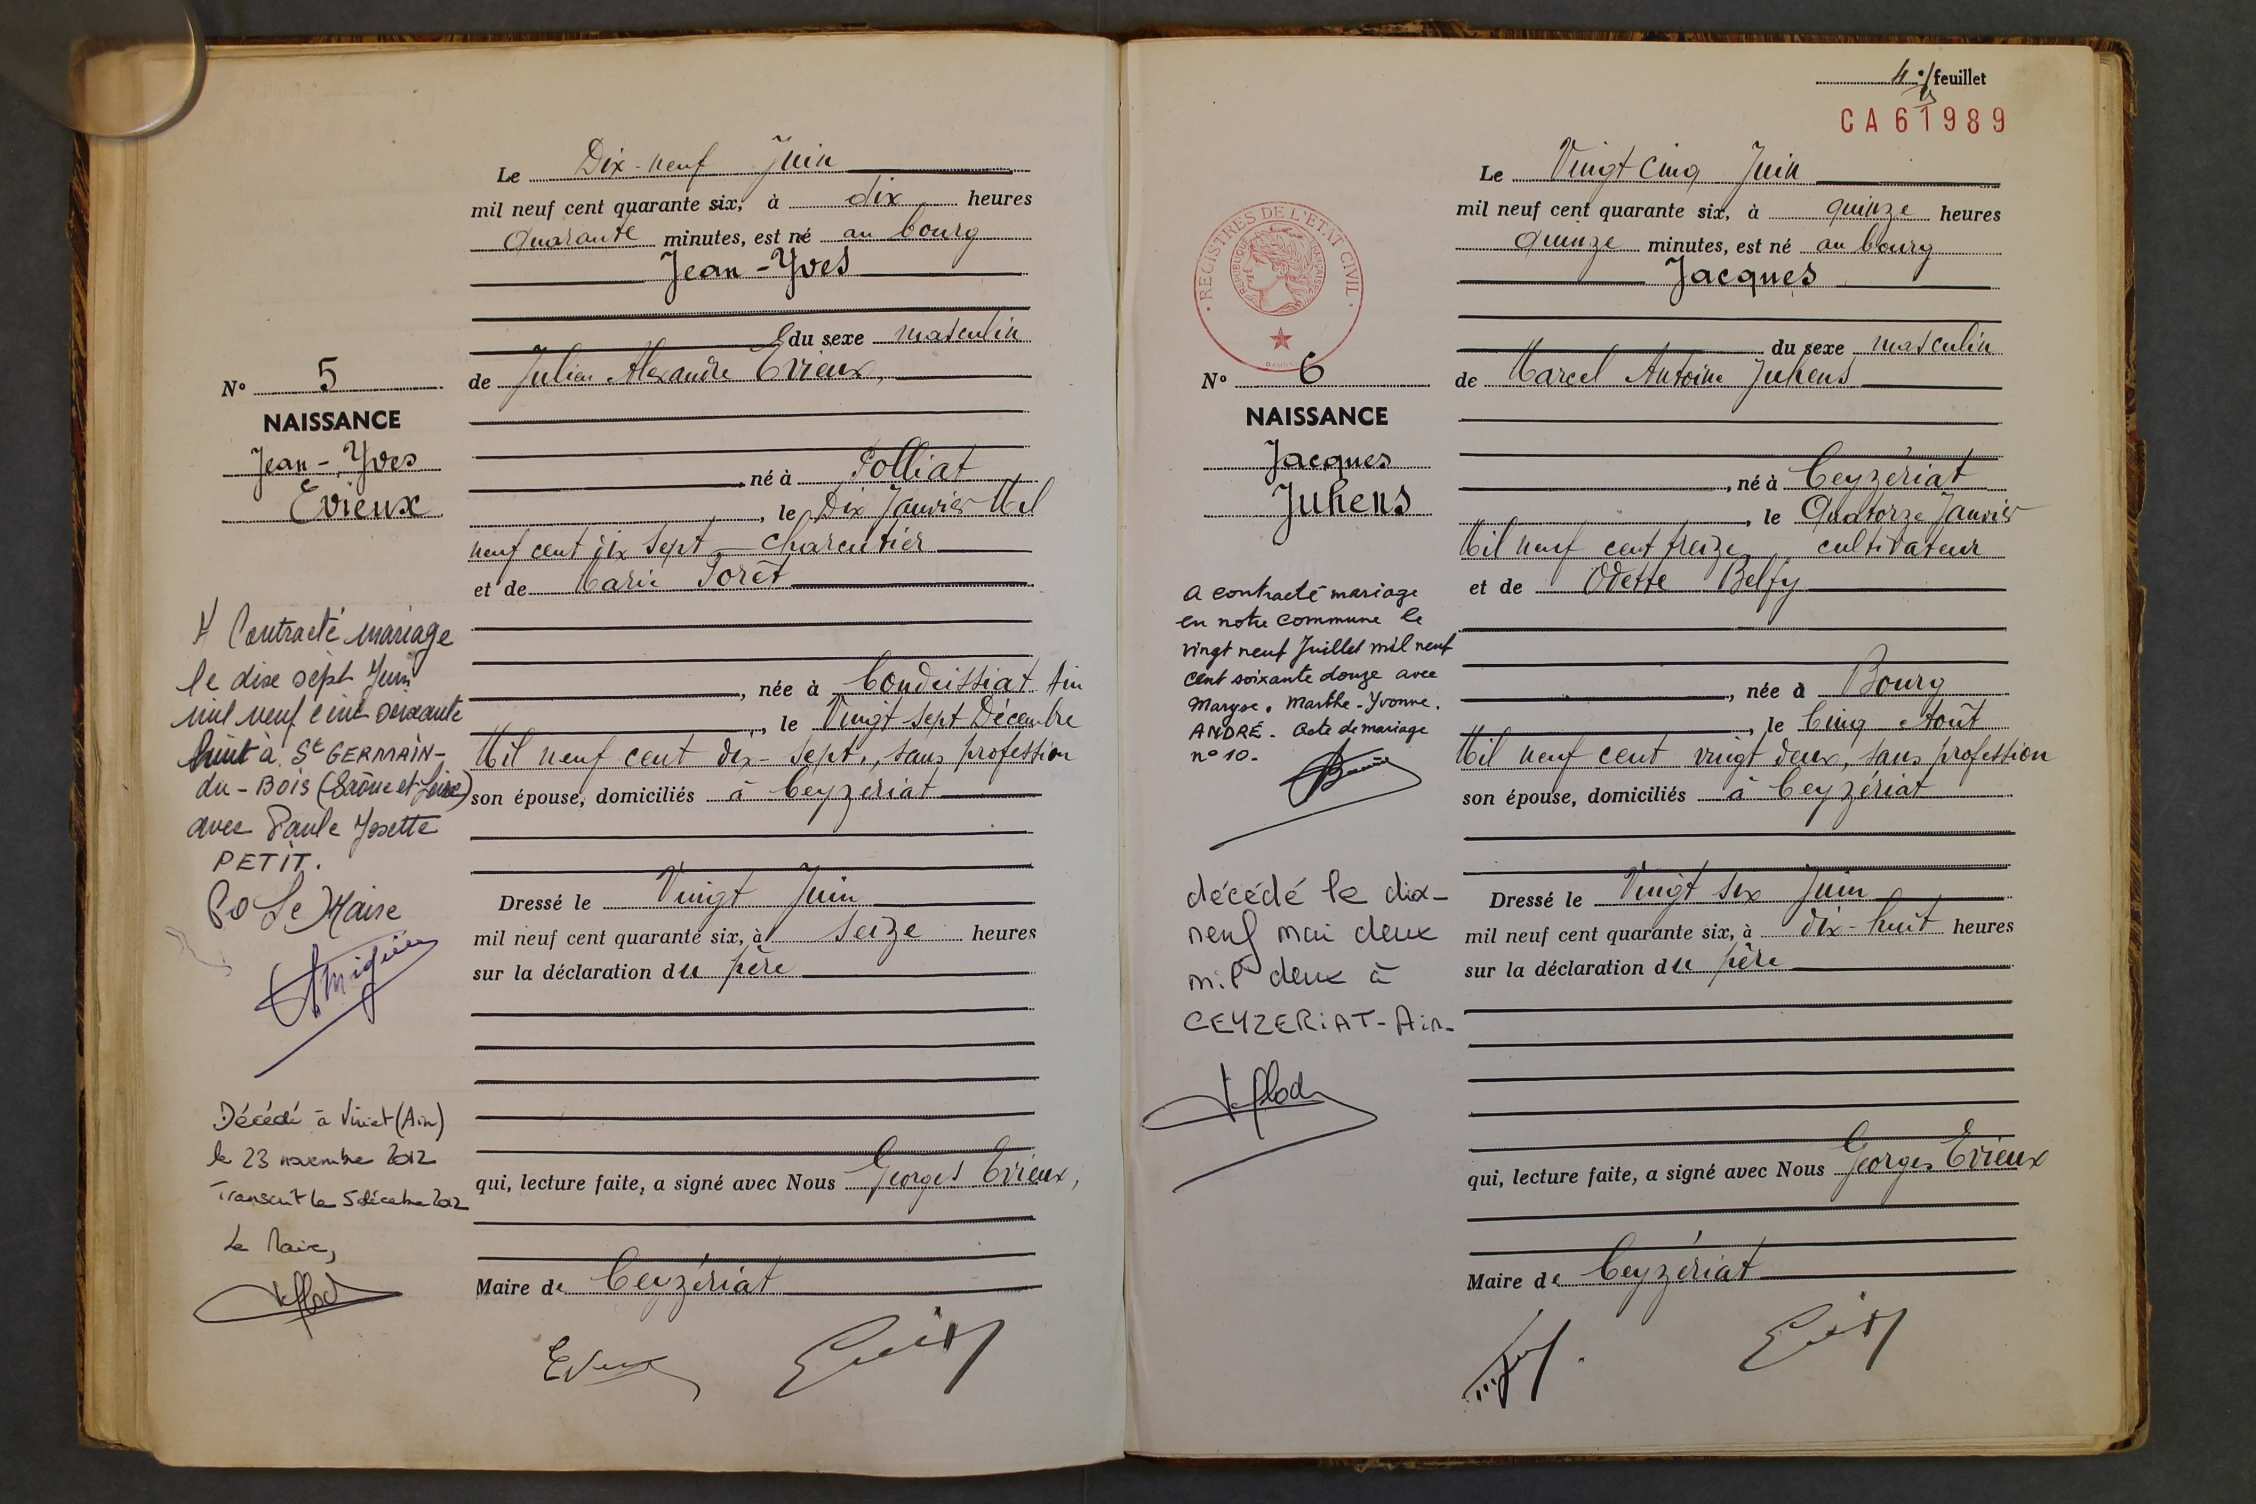 Le Dix-neuf Juin
mil neuf cent quarante six, à dix heures
Quarante minutes, est né au bourg
Jean-Yves
du sexe masculin
de Julien Alexandre Evieux,
né à Polliat
, le Dix Janvier Mil
neuf cent dix sept charcutier
et de Marie Forêt
, née à Condeissiat Ain
, le Vingt sept Décembre
Mil neuf cent dix-sept, sans profession
son épouse, domiciliés à Ceyzériat
Dressé le Vingt Juin
mil neuf cent quarante six, à seize heures
sur la déclaration du père
qui, lecture faite, a signé avec Nous Georges Evieux,
Maire de Ceyzériat
N° 5
NAISSANCE
Jean-Yves
Evieux
A Contracté mariage
le dix sept Juin
mil neuf cent soixante
huit à St GERMAIN-
du-BOIS (Saône et Loire)
avec Paule Josette
PETIT.
Po Le Maire
Décédé à Viriat (Ain)
le 23 novembre 2012
Transcrit le 5 décembre 2012
Le Maire,
4e feuillet
CA 61989
Le Vingt Cinq Juin
mil neuf cent quarante six, à quinze heures
quinze minutes, est né au bourg
Jacques
du sexe masculin
de Marcel Antoine Juhens
, né à Ceyzériat
, le Quatorze Janvier
Mil neuf cent treize cultivateur
et de Odette Belfy
, née à Bourg
, le Cinq Août
Mil neuf cent vingt deux, sans profession
son épouse, domiciliés à Ceyzériat
Dressé le Vingt six Juin
mil neuf cent quarante six, à dix-huit heures
sur la déclaration du père
qui, lecture faite, a signé avec Nous Georges Evieux
Maire de Ceyzériat
REGISTRES DE L'ETAT CIVIL
REPUBLIQUE FRANÇAISE
N° 6
NAISSANCE
Jacques
Juhens
A contracté mariage
en notre commune le
vingt neuf Juillet mil neuf
cent soixante douze avec
Maryse. Marthe-Yvonne.
ANDRÉ. Acte de mariage
n° 10.
décédé le dix-
neuf mai deux
mil deux à
CEYZERIAT-Ain-